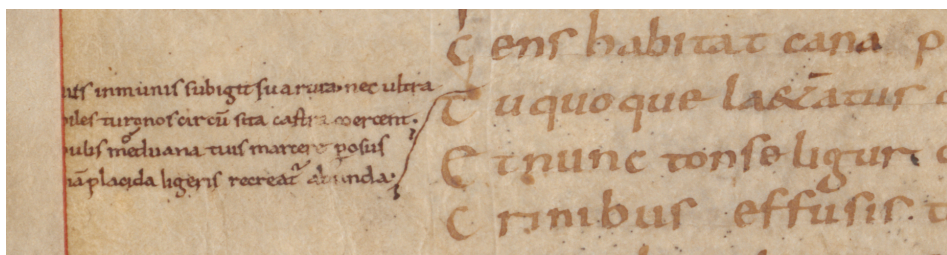 inmunis subigit sua rura nec ultra
biles turonos circū sita castra coercent.
bulis meduana tuis marcere ꝑosus
iā placida ligeris recreat᷑ ab unda.
Gens habitat cana p
Tu quoque lae&atus
Et nunc tonse ligur
Crinibus effusis